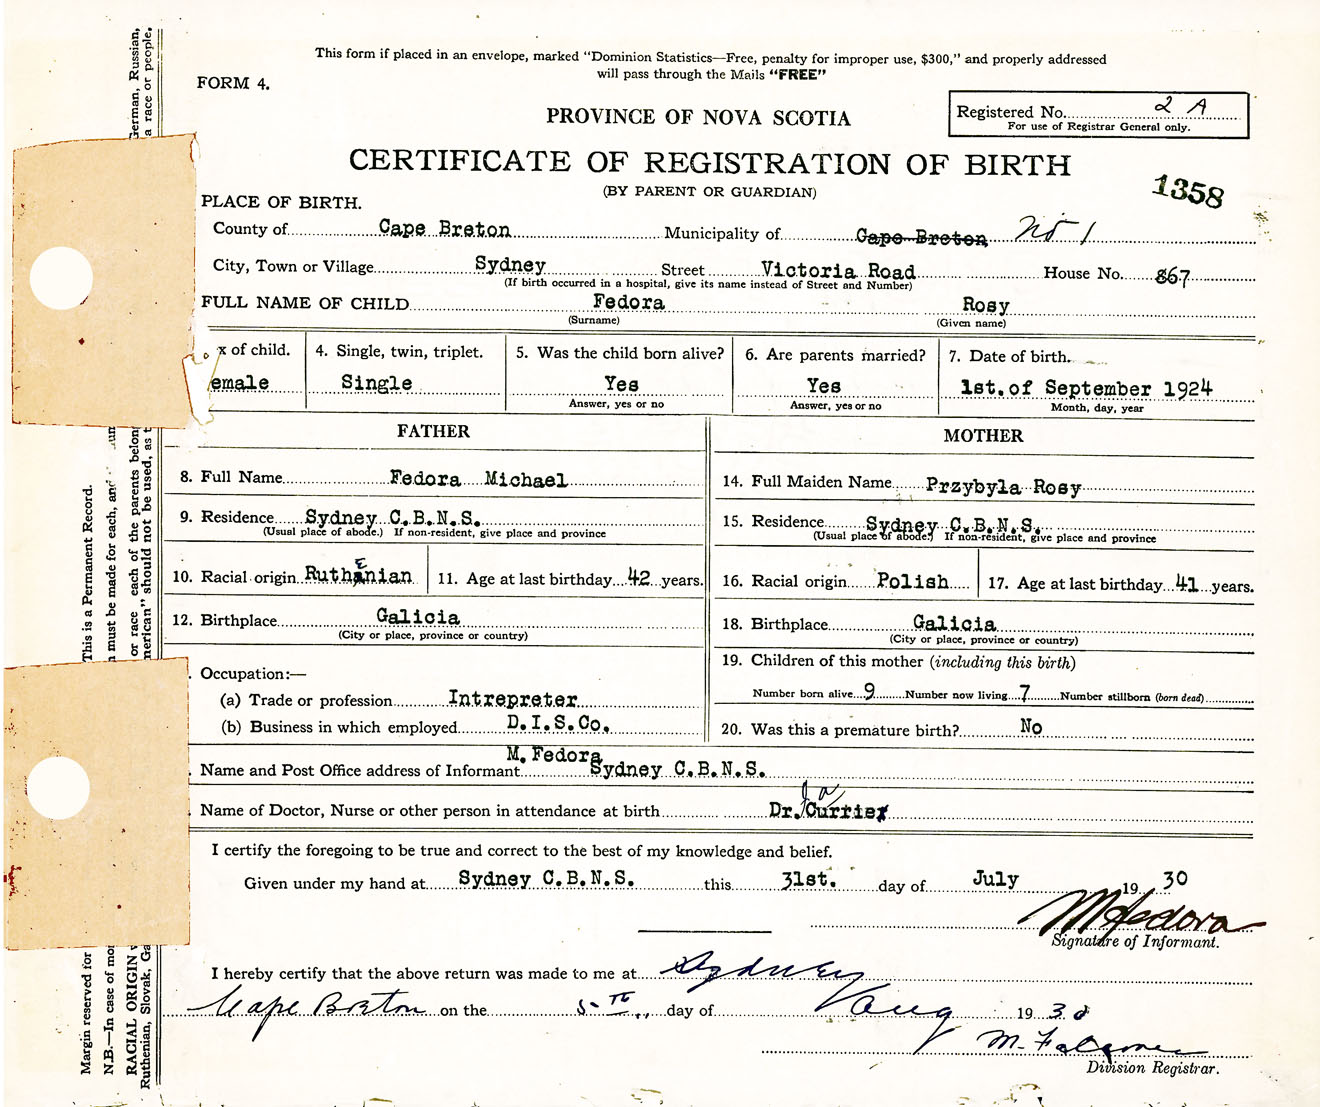 This form if placed in an envelope, marked "Dominion Statistics—Free, penalty for improper use, $300," and properly addressed
will pass through the Mails "FREE"
FORM 4.
PROVINCE OF NOVA SCOTIA
Registered No. 2 A
For use of Registrar General only.
CERTIFICATE OF REGISTRATION OF BIRTH
(BY PARENT OR GUARDIAN)
1358
PLACE OF BIRTH.
County of Cape Breton Municipality of Cape Breton No 1
City, Town or Village Sydney Street Victoria Road House No. 867
(If birth occurred in a hospital, give its name instead of Street and Number)
FULL NAME OF CHILD Fedora Rosy
(Surname) (Given name)
x of child. 4. Single, twin, triplet. 5. Was the child born alive? 6. Are parents married? 7. Date of birth.
emale Single Yes Yes 1st. of September 1924
Answer, yes or no Answer, yes or no Month, day, year
FATHER MOTHER
8. Full Name Fedora Michael
14. Full Maiden Name Przybyla Rosy
9. Residence Sydney C.B.N.S.
(Usual place of abode.) If non-resident, give place and province
15. Residence Sydney C.B.N.S.
(Usual place of abode.) If non-resident, give place and province
10. Racial origin Ruthenian 11. Age at last birthday 42 years.
16. Racial origin Polish 17. Age at last birthday 41 years.
12. Birthplace Galicia
(City or place, province or country)
18. Birthplace Galicia
(City or place, province or country)
19. Children of this mother (including this birth)
Number born alive 9 Number now living 7 Number stillborn (born dead)
20. Was this a premature birth? No
. Occupation:—
(a) Trade or profession Intrepreter
(b) Business in which employed D.I.S.Co.
M. Fedora
. Name and Post Office address of Informant Sydney C.B.N.S.
. Name of Doctor, Nurse or other person in attendance at birth Dr. Currie
I certify the foregoing to be true and correct to the best of my knowledge and belief.
Given under my hand at Sydney C.B.N.S. this 31st. day of July 19 30
M Fedora
Signature of Informant.
I hereby certify that the above return was made to me at Sydney
Cape Breton on the 5th day of Aug 19 30
M.
Division Registrar.
Margin reserved for
This is a Permanent Record.
N.B.—In case of mor
n must be made for each, and
RACIAL ORIGIN
or race each of the parents belong
Ruthenian, Slovak, Ga
merican" should not be used, as t
German, Russian,
a race or people.